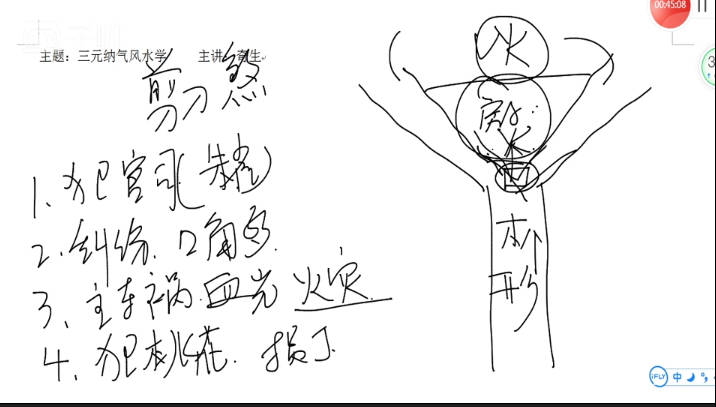 00:45:08
主题：三元纳气风水学 主讲：奇生
剪刀煞
1、犯官司(朱雀)
2、纠纷、口角多
3、主车祸.血光 火灾
4、犯桃花. 损丁
火
煞
火
回
木
形
3
iFLY 中